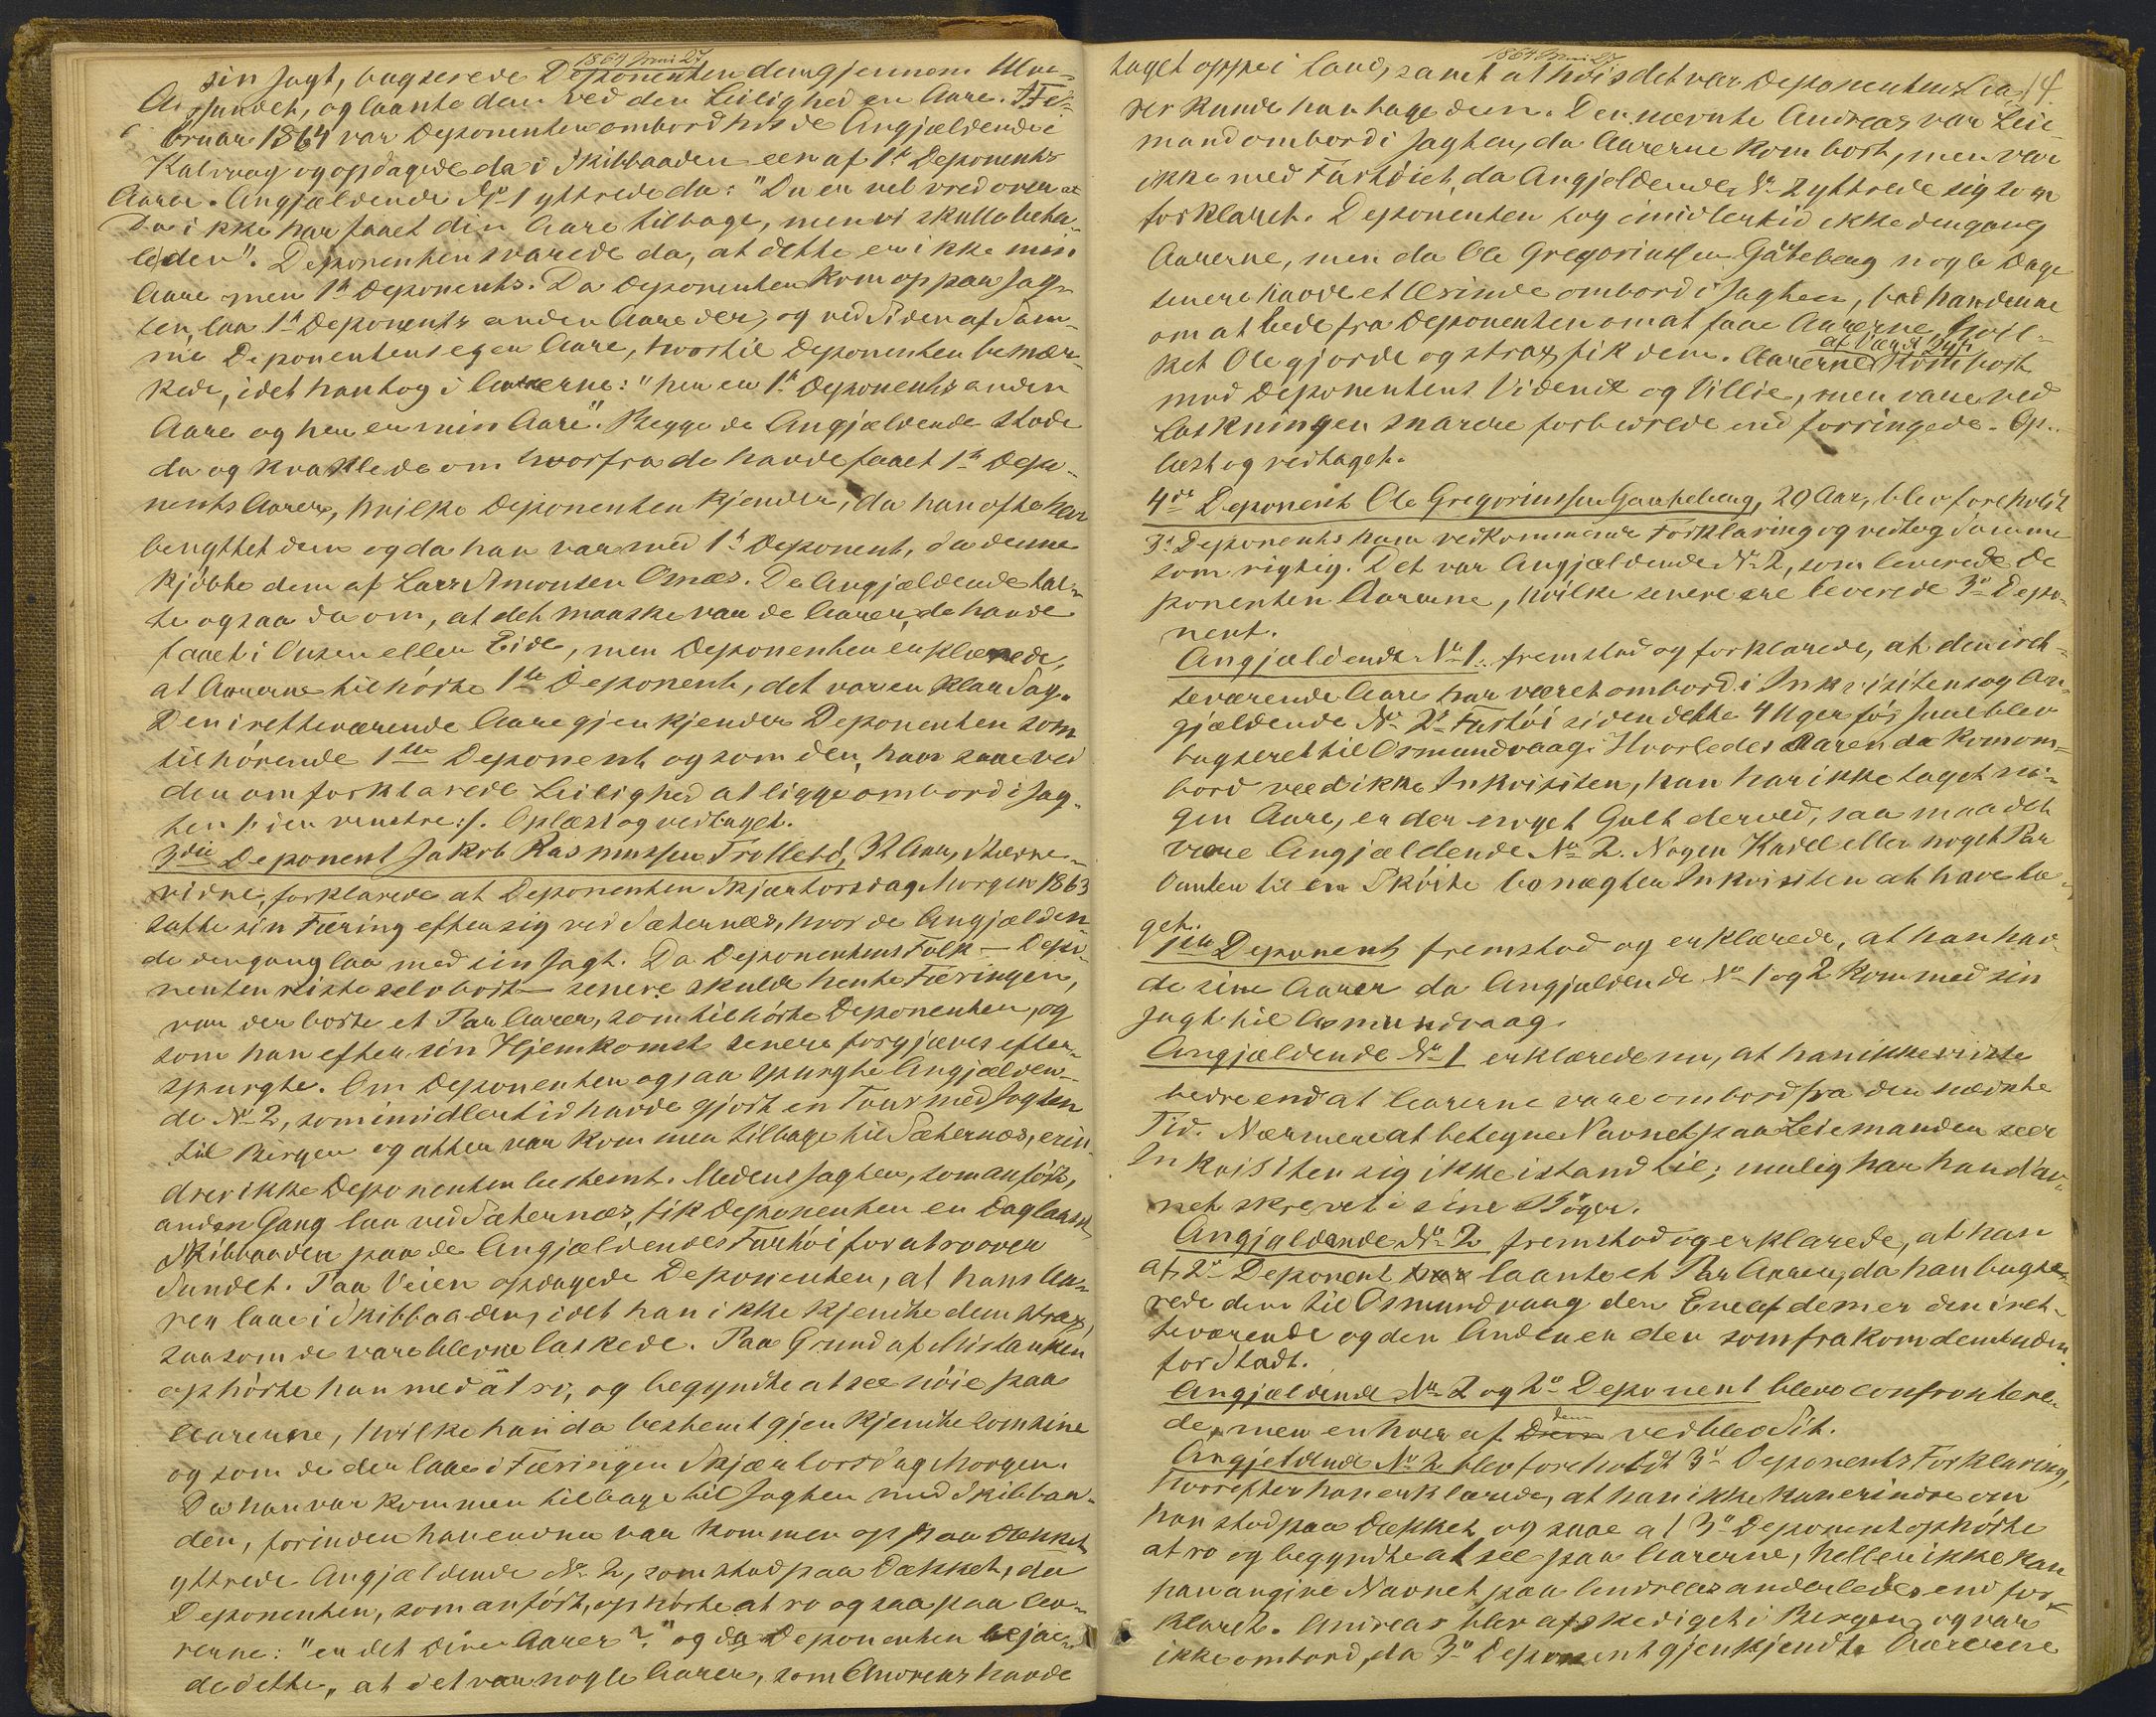 1864 Juni 27.
sin Jagt, bugserede Deponenten dem gjennem
sundet, og laante dem ved den Leilighed en Aare. I Fe-
bruar 1864 var Deponenten ombord hos de Angjældende i
Kalvaag og opdagede da i Skibbaaden een af 1ste Deponents
Aarer. Angjældende No 1 yttrede da: "Du er vel vred over at
Du ikke har faaet din Aare tilbage, men vi skulle beta-
le den". Deponenten svarede da, at dette er ikke min
Aare men 1ste Deponents. Da Deponenten kom op paa Jag-
ten, laa 1ste Deponents anden Aare der, og ved Siden af Sam-
me Deponentens egen Aare, hvortil Deponenten bemær-
kede, idet han tog i Aarerne: "her er 1ste Deponents anden
Aare og her er min Aare". Begge de Angjældende stode
da og kraklede om hvorfra de havde faaet 1ste Depo-
nents Aarer, hvilke Deponenten kjender, da han ofte har
benyttet dem og da han var med 1ste Deponent, da denne
kjøbte dem af Lars Simonsen Osnæs. De Angjældende tal-
te ogsaa da om, at det maaske var de Aarer, de havde
faaet i Eusen eller Eide, men Deponenten erklærede,
at Aarerne tilhørte 1ste Deponent, det var en klar Sag.
Den iretteværende Aare gjenkjender Deponenten som
tilhørende 1ste Deponent og som den, han saae ved
den omforklarede Leilighed at ligge ombord i Jag-
ten /: den venstre :/. Oplæst og vedtaget.
3die Deponent Jakob Rasmussen Trollebø, 32 Aar,
vidne, forklarede at Deponenten Skjærtorsdag Morgen 1863
satte sin Færing efter sig ved Sæternæs, hvor de Angjælden-
de dengang laa med sin Jagt. Da Deponentens Folk – Depo-
nenten reiste selv bort – senere skulde hente Færingen,
var der borte et Par Aarer, som tilhørte Deponenten, og
som han efter sin Hjemkomst senere forgjæves efter-
spurgte. Om Deponenten ogsaa spurgte Angjælden-
de No 2, som imidlertid havde gjort en Tour med Jagten
til Bergen og atter var kommen tilbage til Sæternæs, erin-
drer ikke Deponenten bestemt. Medens Jagten, som anført,
anden Gang laa ved Sæternæs, fik Deponenten en Dag laant
Skibbaaden paa de Angjældendes Fartøi for at roe over
Sundet. Paa Veien opdagede Deponenten, at hans Aa-
rer laae i Skibbaaden, idet han ikke kjendte dem strax,
saasom de vare blevne laskede. Paa Grund af Mistanken
ophørte han med at ro, og begyndte at see nøie paa
Aarerne, hvilke han da bestemt gjenkjendte som sine
og som de der laae i Færingen Skjærtorsdag Morgen.
Da han var kommen tilbage til Jagten med Skibbaa-
den, forinden han endnu var kommen op paa Dækket
yttrede Angjældende No 2, som stod paa Dækket, da
Deponenten, som anført, ophørte at ro og saa paa Aa-
rerne: "er det Dine Aarer?" og da Deponenten bejae-
de dette, at det var nogle Aarer, som Andreas havde
1864 Juni 27.
14
taget oppe i Land, samt at hvis det var Deponentens Aa-
rer kunde han tage dem. Den nævnte Andreas var Leie-
mand ombord i Jagten, da Aarerne kom bort, men var
ikke med Fartøiet, da Angjeldende No 2 yttrede sig som
forklaret. Deponenten tog imidlertid ikke dengang
Aarerne, men da Ole Gregoriussen Gåteberg nogle Dage
senere havde et Ærinde ombord i Jagten, bad han denne
om at bede fra Deponenten om at faae Aarerne, hvil-
ket Ole gjorde og strax fik dem. Aarerne af Værdi kom bort
mod Deponentens Vidende og Villie, men vare ved
Laskningen snarere forbedrede end forringede. Op-
læst og vedtaget.
4de Deponent Ole Gregoriussen Gaateberg, 20 Aar, blev foreholdt
3die Deponents ham vedkommende Forklaring og vedtog Samme
som rigtig. Det var Angjældende No 2, som leverede De
ponenten Aarerne, hvilke senere ere leverede 3die Depo-
nent.
Angjældende No 1. fremstod og forklarede, at den iret-
teværende Aare har været ombord i Inkvisitens og An-
gjældende No 2s Fartøi siden dette 4 Uger før Juul blev
bugseret til Osmundvaag. Hvorledes Aaren da kom om-
bord veed ikke Inkvisiten, han har ikke taget no-
gen Aare, er der noget Galt derved, saa maa det
være Angjældende No 2. Nogen Kadel eller noget Par
Vanter til en Skøite benægter Inkvisiten at have ta-
get.
1ste Deponent fremstod og erklærede, at han hav-
de sine Aarer da Angjældende No 1 og 2 kom med sin
Jagt til Osmundvaag.
Angjældende No 1 erklærede nu, at han ikke vidste
bedre end at Aarerne vare ombord fra den nævnte
Tid. Nærmere at betegne Navnet paa Leiemanden seer
Inkvisiten sig ikke istand til; mulig har han Nav-
net skrevet i sine Bøger.
Angjældende No 2 fremstod og erklærede, at han
af 2den Deponent laante et Par Aarer, da han bugse-
rede dem til Osmundvaag den Ene af dem er den iret-
teværende og den Anden er den som frakom dem
for Stadt.
Angjældende No 2 og 2den Deponent bleve confrontere-
de, men enhver af dem vedblev Sit.
Angjældende No 2 blev foreholdt 3die Deponents Forklaring,
hvorefter han erklærede, at han ikke kan erindre om
han stod paa Dækket og saae at 3die Deponent ophørte
at ro og begyndte at see paa Aarerne, heller ikke kan
han angive Navnet paa Andreas anderledes end for-
klaret. Andreas blev afskediget i Bergen og var
ikke ombord, da 3die Deponent gjenkjendte Aarerne